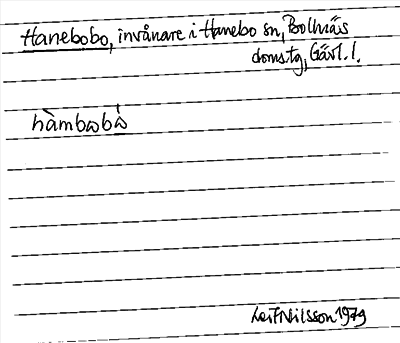 Hanebobo, invånare i Hanebo sn, Bollnäs
doms.tg, Gävl. l.
hàmbωbὼ
Leif Nilsson 1979